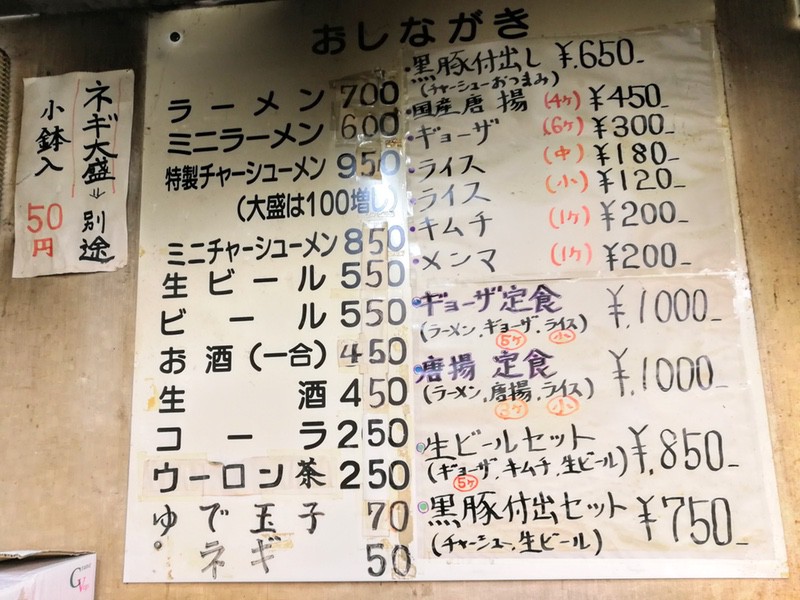 おしながき
ラーメン 700
ミニラーメン 600
特製チャーシューメン 950
(大盛は100増し)
ミニチャーシューメン 850
生ビール 550
ビール 550
お酒(一合) 450
生酒 450
コーラ 250
ウーロン茶 250
ゆで玉子 70
ネギ 50
・黒豚付出し ¥650-
(チャーシューおつまみ)
・国産唐揚 (4ヶ) ¥450
・ギョーザ (6ヶ) ¥300-
・ライス (中) ¥180-
・ライス (小) ¥120-
・キムチ (1ヶ) ¥200-
・メンマ (1ヶ) ¥200-
ギョーザ定食 ¥1000-
(ラーメン、ギョーザ、ライス)
5ヶ 小
唐揚定食 ¥1000-
(ラーメン、唐揚、ライス)
3ヶ 小
生ビールセット ¥850-
(ギョーザ、キムチ、生ビール)
5ヶ
黒豚付出セット ¥750-
(チャーシュー、生ビール)
ネギ大盛⇒別途
小鉢入 50円